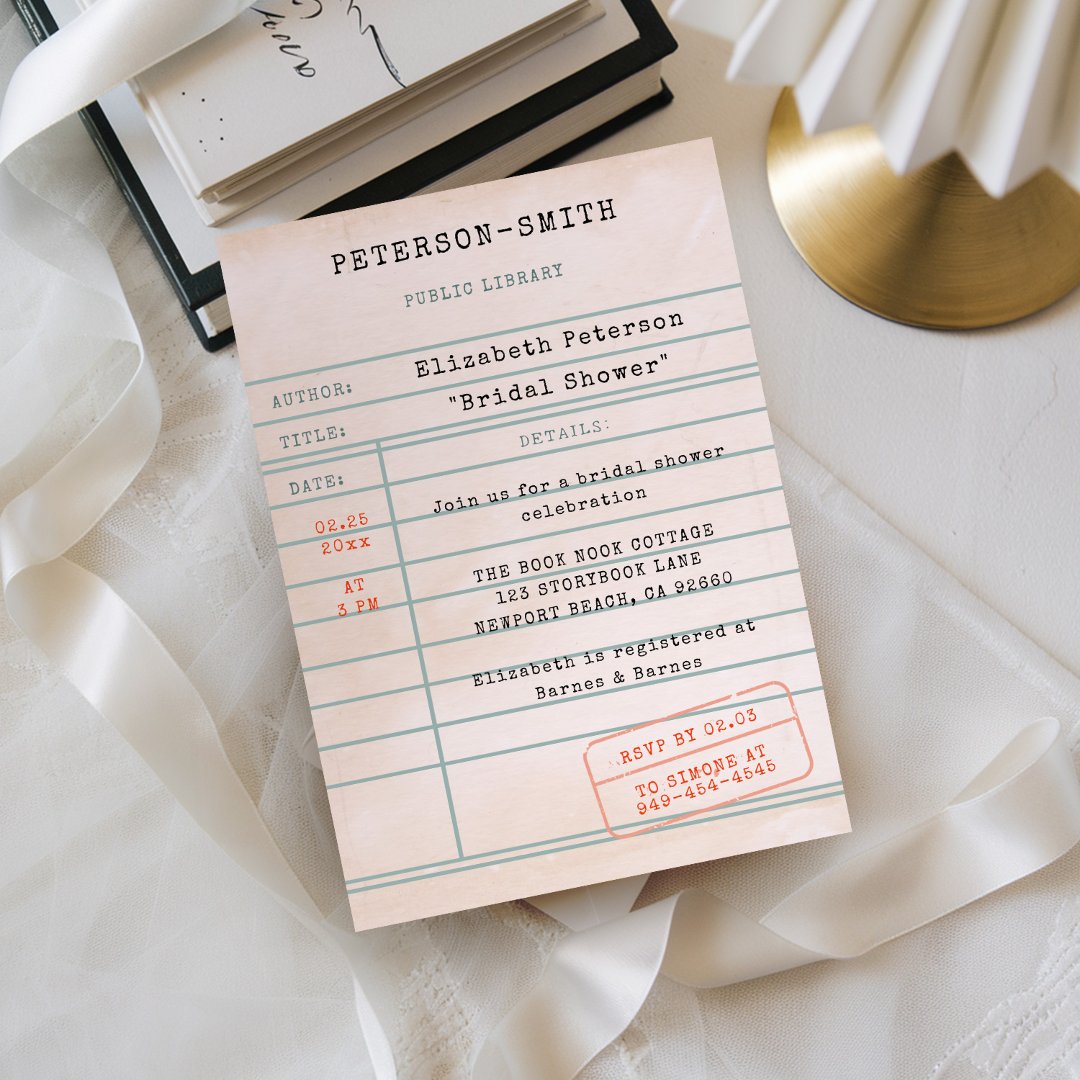 PETERSON-SMITH
PUBLIC LIBRARY
AUTHOR: Elizabeth Peterson
TITLE: "Bridal Shower"
DATE:
02.25
20xx
AT
3 PM
DETAILS:
Join us for a bridal shower
celebration
THE BOOK NOOK COTTAGE
123 STORYBOOK LANE
NEWPORT BEACH, CA 92660
Elizabeth is registered at
Barnes & Barnes
RSVP BY 02.03
TO SIMONE AT
949-454-4545